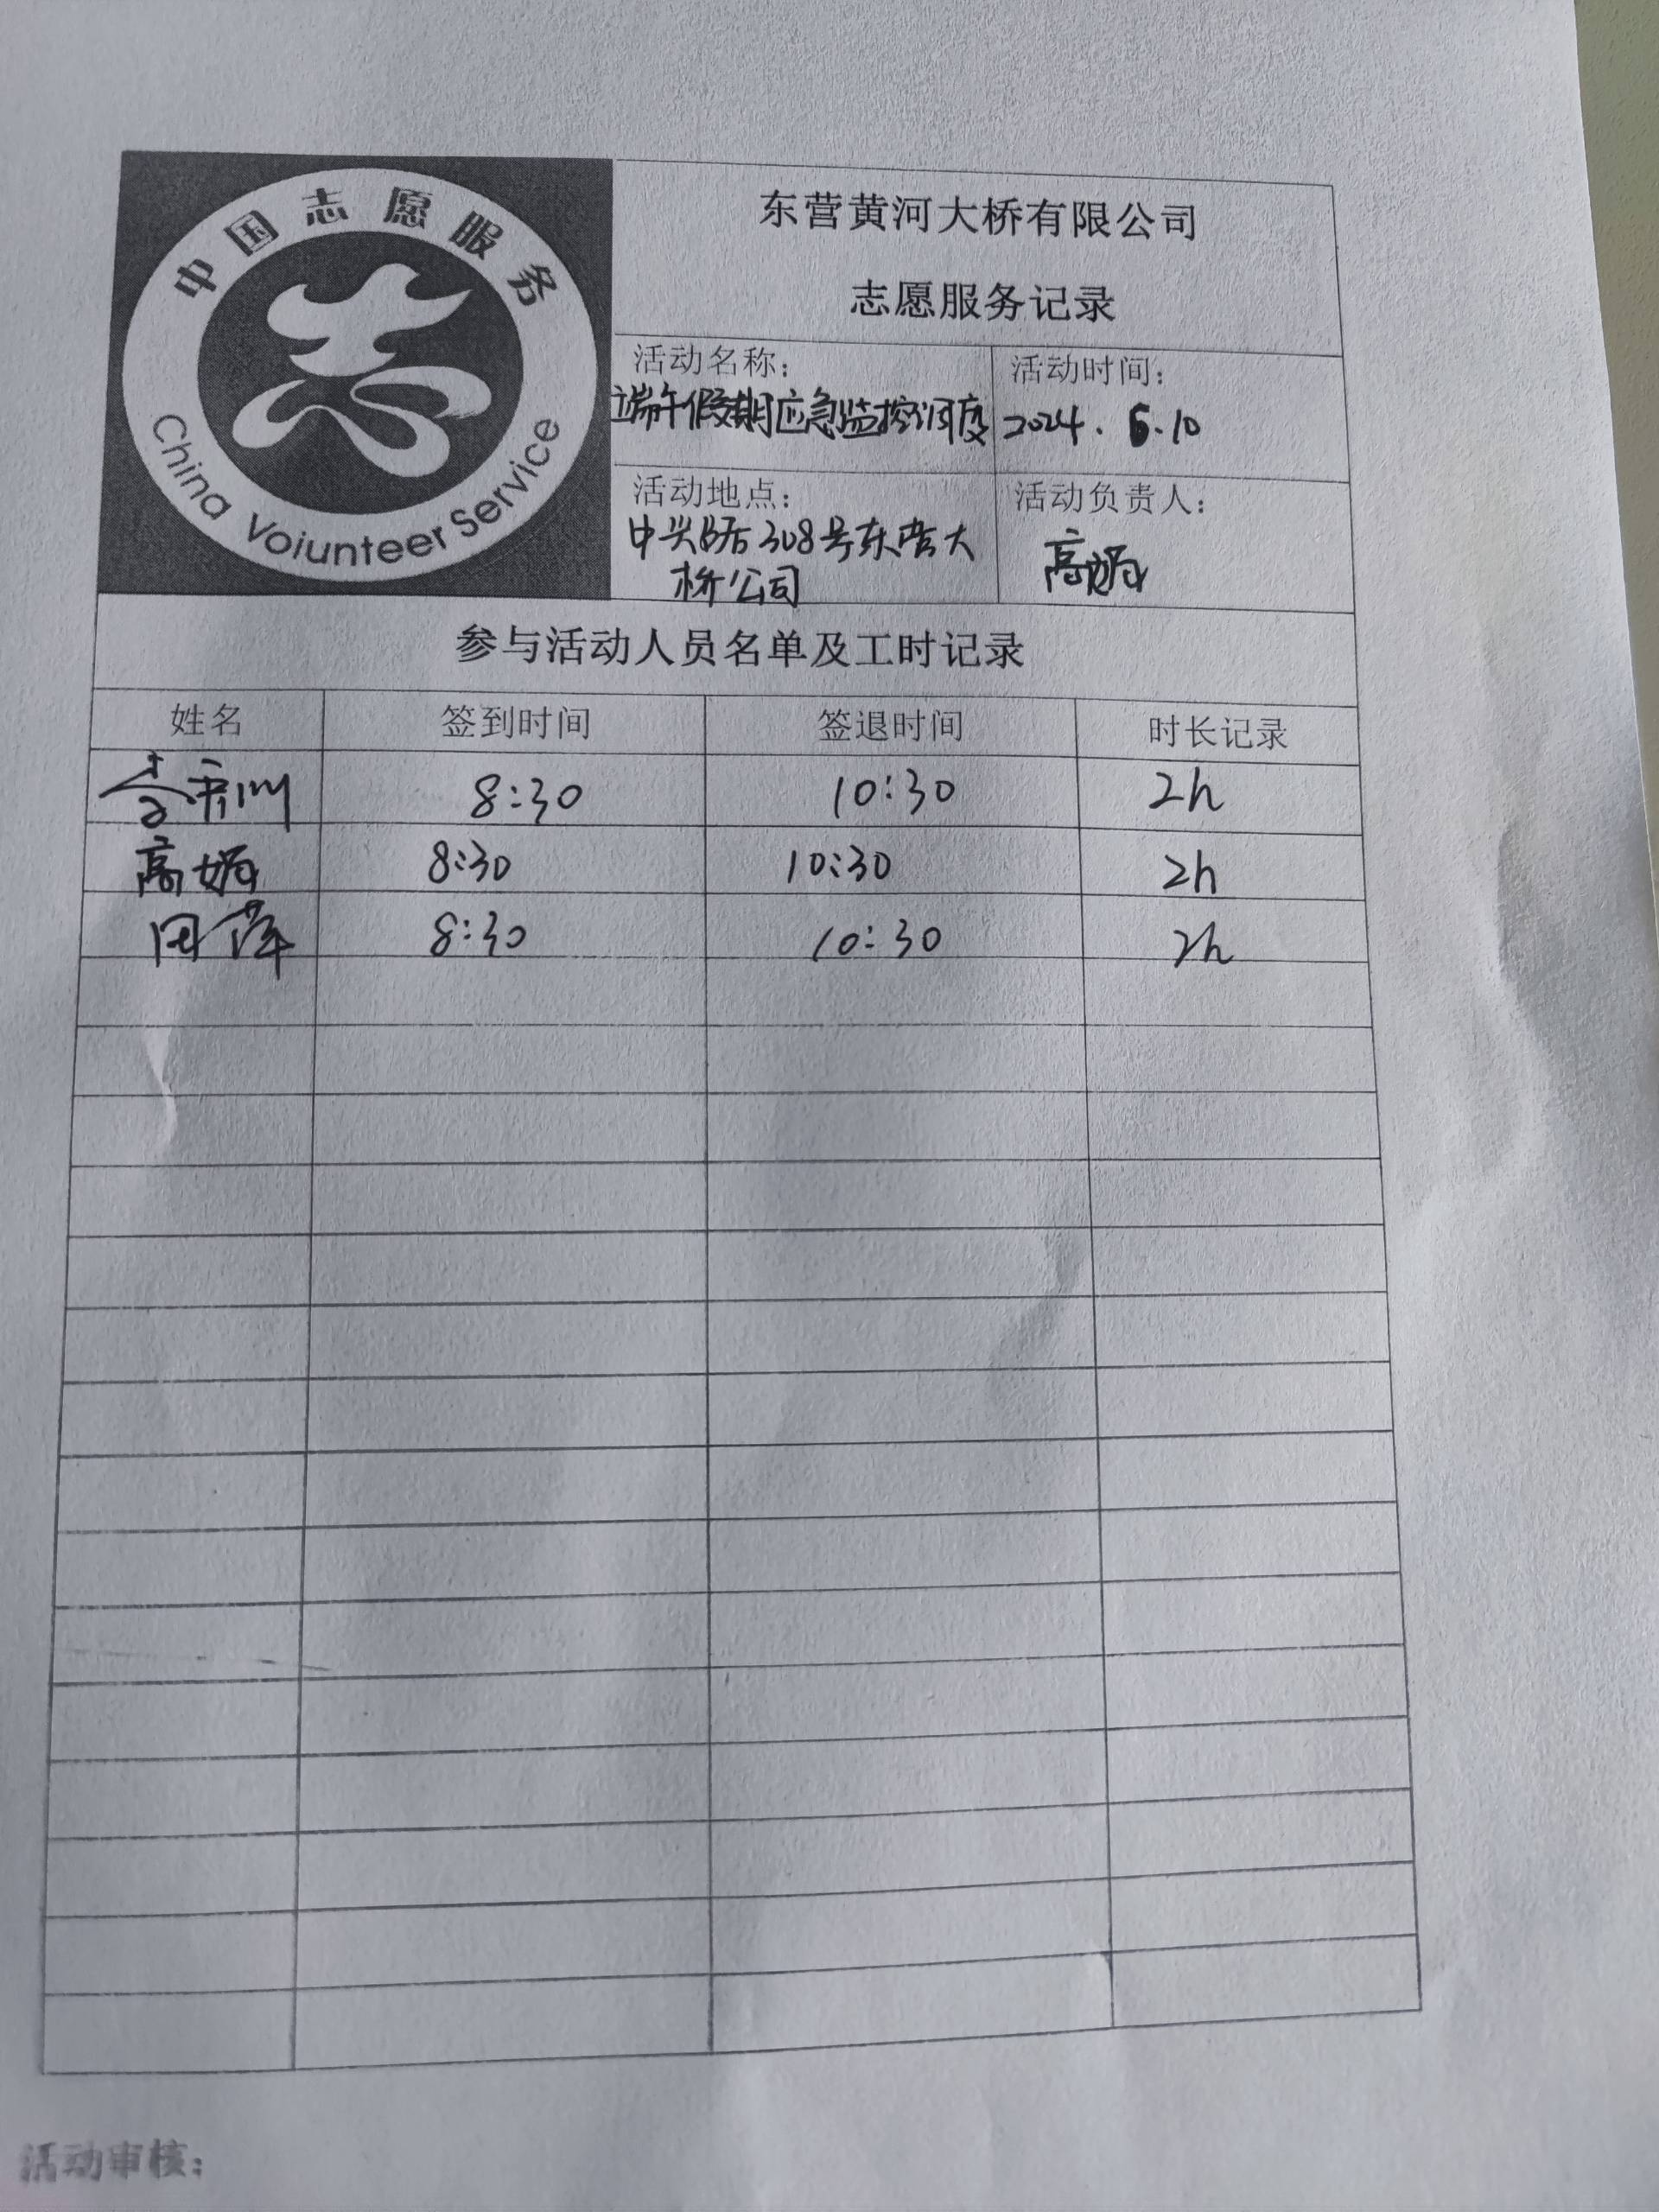 中国志愿服务
China Voiunteer Service
东营黄河大桥有限公司
志愿服务记录
活动名称：
端午假期应急监控调度
活动时间：
2024.6.10
活动地点：
中兴路308号东营大
桥公司
活动负责人：
高娟
参与活动人员名单及工时记录
姓名 签到时间 签退时间 时长记录
8:30 10:30 2h
高娟 8:30 10:30 2h
田萍 8:30 10:30 2h
活动审核：